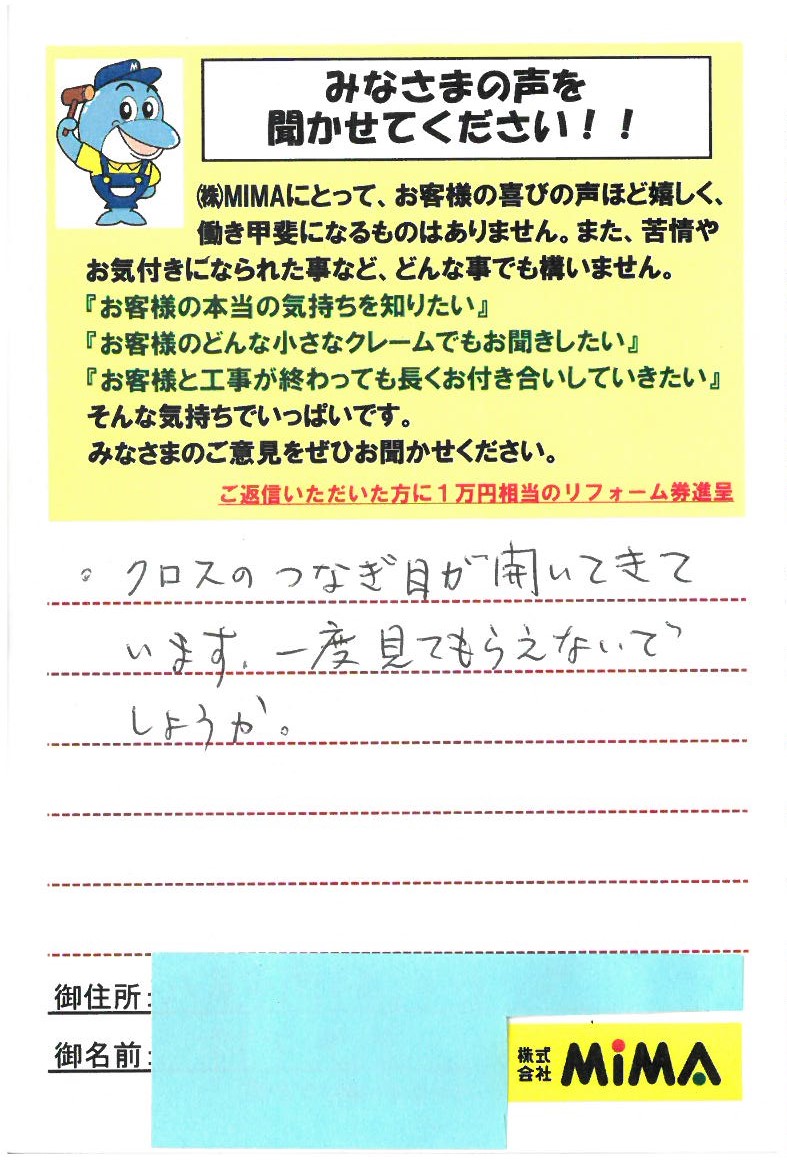 みなさまの声を
聞かせてください！！
㈱MIMAにとって、お客様の喜びの声ほど嬉しく、
働き甲斐になるものはありません。また、苦情や
お気付きになられた事など、どんな事でも構いません。
『お客様の本当の気持ちを知りたい』
『お客様のどんな小さなクレームでもお聞きしたい』
『お客様と工事が終わっても長くお付き合いしていきたい』
そんな気持ちでいっぱいです。
みなさまのご意見をぜひお聞かせください。
ご返信いただいた方に１万円相当のリフォーム券進呈
。クロスのつなぎ目が開いてきて
います。一度見てもらえないで
しょうか。
御住所：
御名前：
株式会社 MiMA